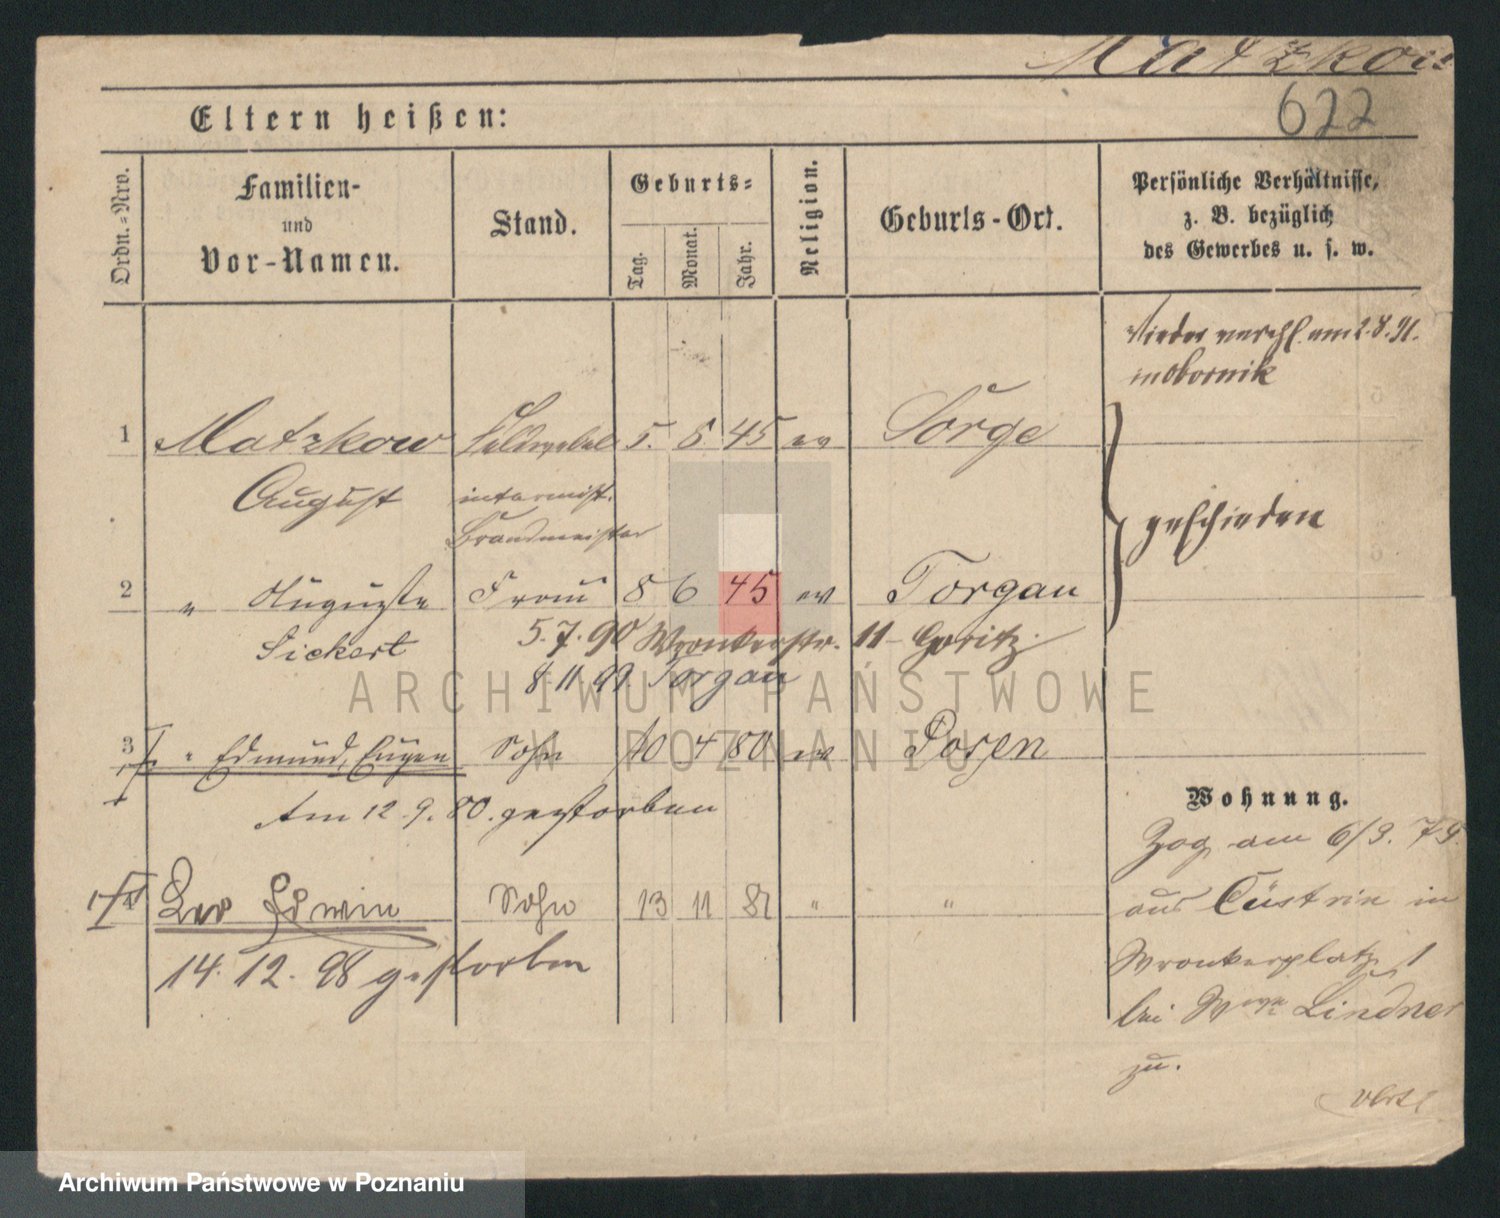 Matzkow
622
Eltern heißen:
Ordn.-Nro.
Familien-
und
Vor-Namen.
Stand.
Geburts-
Tag.
Monat.
Jahr.
Religion.
Geburts-Ort.
Persönliche Verhältnisse,
z. B. bezüglich
des Gewerbes u. s. w.
wieder verehl. am 2.8.91.
in Obornik
1 Matzkow Feldwebel 5. 8 45 ev Sorge
August intermist.
Brandmeister
geschieden
2 " Auguste Frau 8 6 45 ev Torgau
Sickert 5.7.90 Wronkerstr. 11 - Goritz
8 11 99. Torgau
3 " Edmund, Eugen Sohn 10 4 80 ev Posen
Am 12.9.80. gestorben
Wohnung.
Zog am 6/9. 79.
Leo Edwin Sohn 13 11 81 " "
aus Cüstrin in
14.12.98 gestorben
Wronkerplatz 1
bei Wwe Lindner
zu.
ARCHIWUM PAŃSTWOWE
W POZNANIU
Archiwum Państwowe w Poznaniu